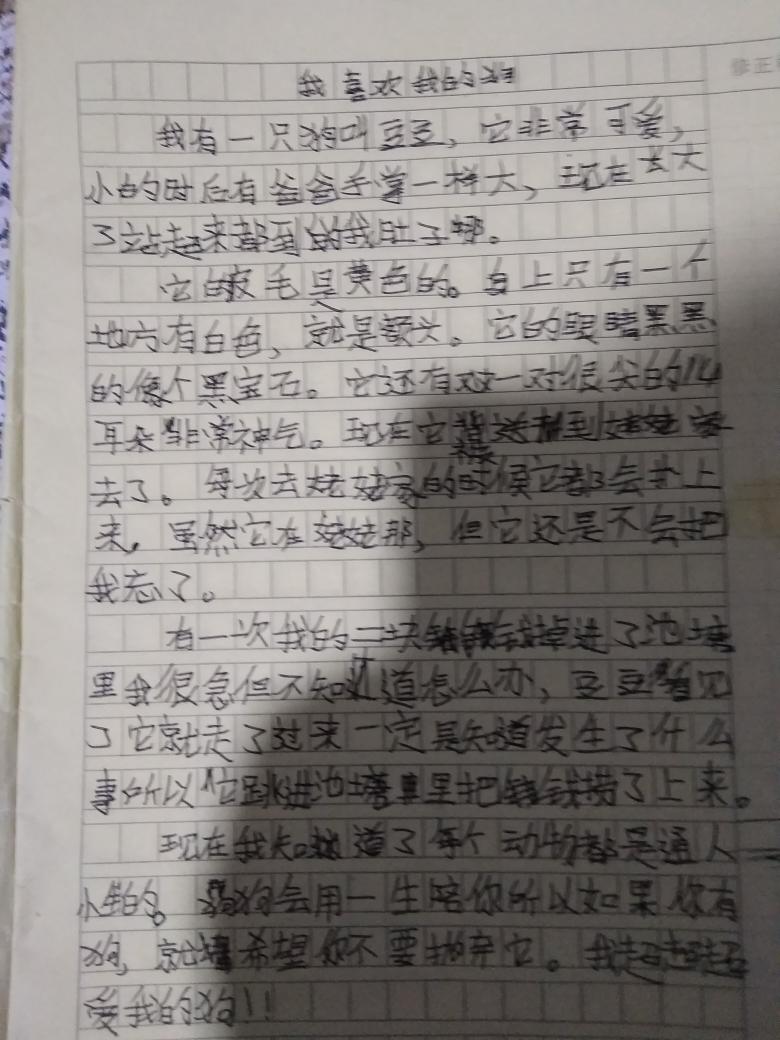 我喜欢我的狗
我有一只狗叫豆豆，它非常可爱，
小的时后有爸爸手掌一样大，现在长大
了站起来都到的我肚子哪。
它的皮毛是黄色的。身上只有一个
地方有白色，就是额头。它的眼睛黑黑
的像个黑宝石。它还有一对很尖的
耳朵非常神气。现在它被送到姑姑家
去了。每次去姑姑家的时候它都会扑上
来，虽然它在姑姑那，但它还是不会把
我忘了。
有一次我的二块钱掉进了池塘
里我很急但不知道怎么办，豆豆看见
了它就走了过来一定是知道发生了什么
事所以它跳进池塘里把钱捞了上来。
现在我知道了每个动物都是通人
小的。狗狗会用一生陪你所以如果你有
狗，就希望你不要抛弃它。我超超超
爱我的狗!!
修正